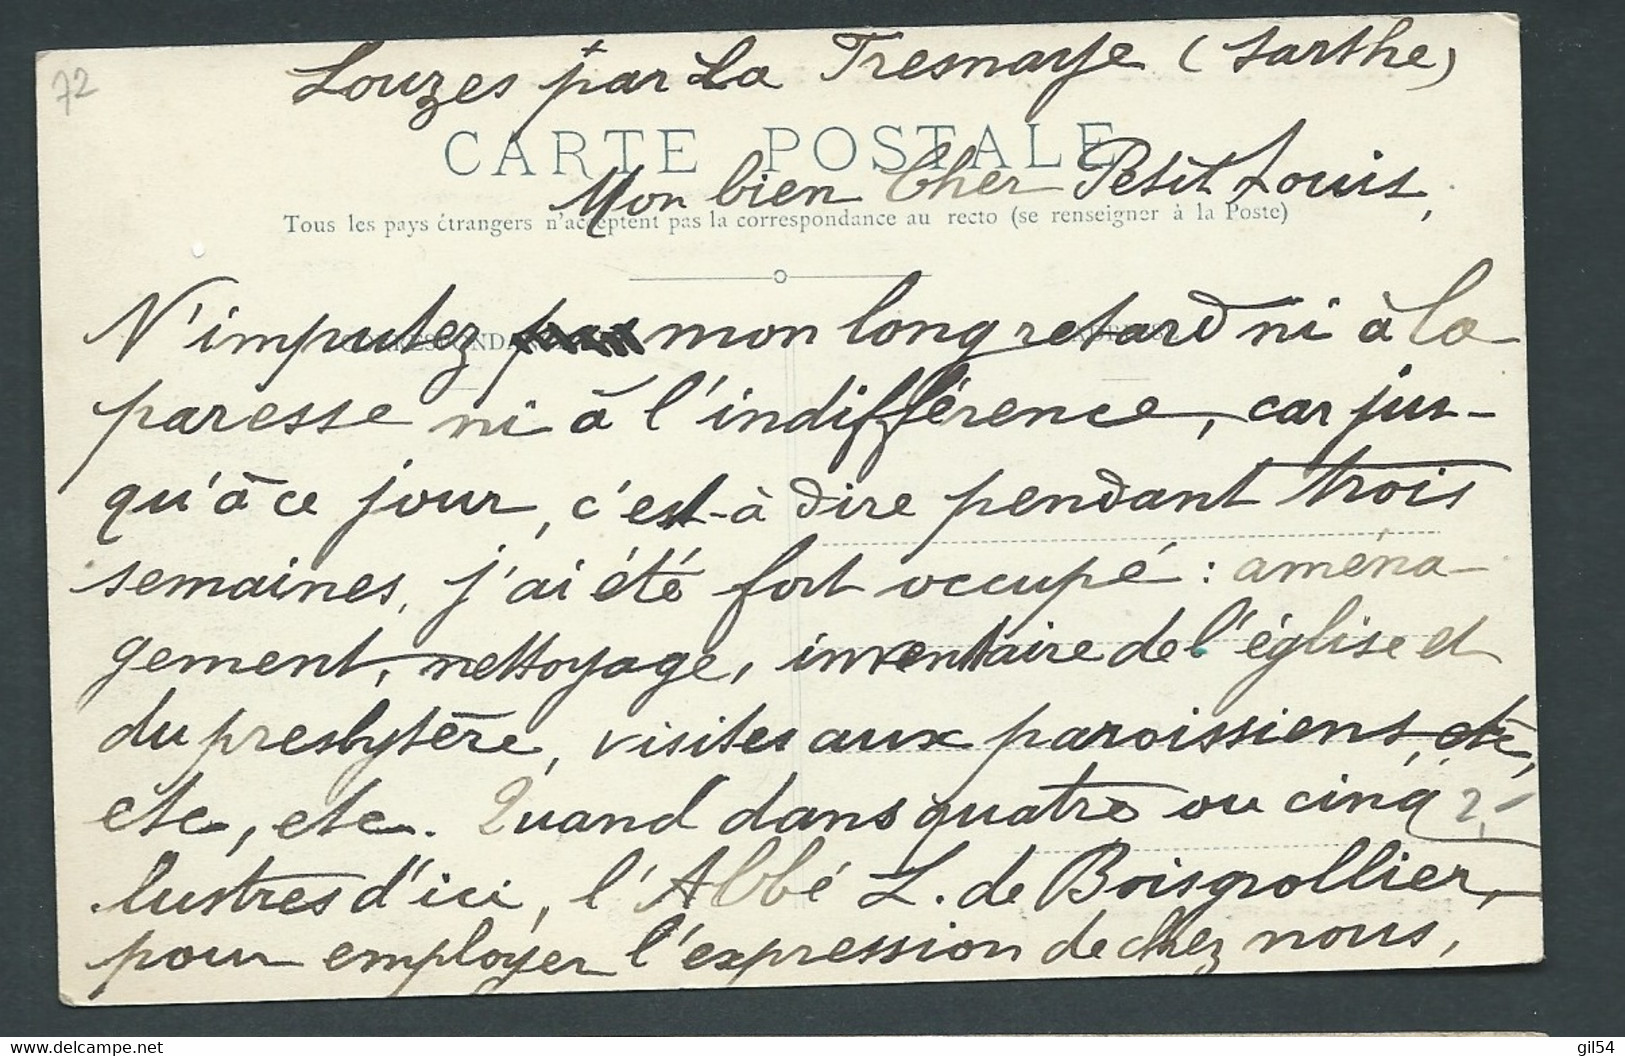 72
Louzes par La Fresnaye (Sarthe)
CARTE POSTALE
Mon bien Cher Petit Louis,
Tous les pays étrangers n'acceptent pas la correspondance au recto (se renseigner à la Poste)
N'imputez mon long retard ni à la
paresse ni à l'indifférence, car jus-
qu'à ce jour, c'est-à dire pendant trois
semaines, j'ai été fort occupé : aména-
gement, nettoyage, inventaire de l'église et
du presbytère, visites aux paroissiens, etc,
etc, etc. Quand dans quatre ou cinq
lustres d'ici, l'Abbé L. de Boisgrollier,
pour employer l'expression de chez nous,
www.delcampe.net
gil54